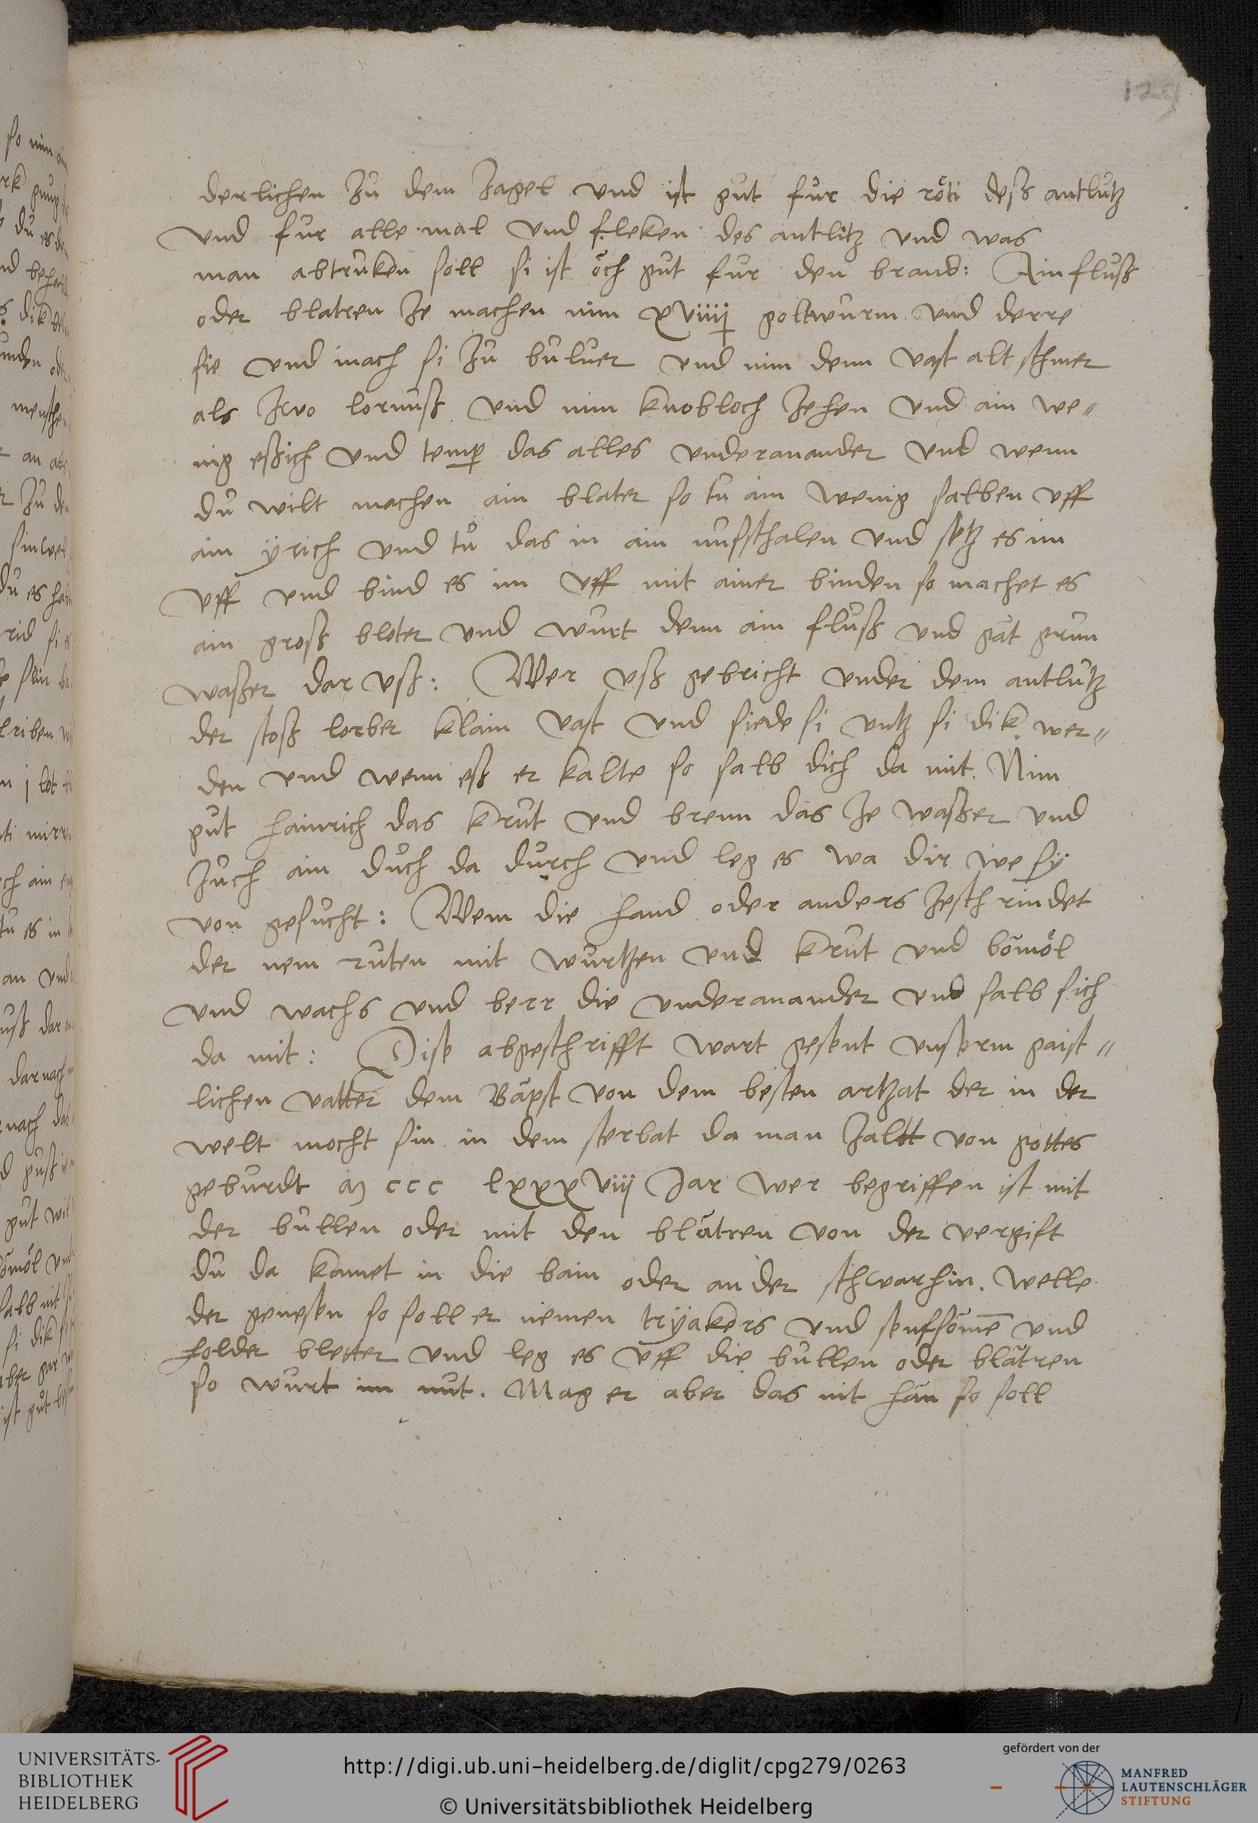 129
derlichen zů dem zagel vnd ist gut fur die röti deß antlutz
vnd fur alle mal vnd fleken des antlitz vnd was
man abtruken soll si ist öch gut fur den brand: Ain fluß
oder blatren ze machen nim xviiij goltwurm vnd derre
sie vnd mach si zů buluer vnd nim denn vast alt schmer
als zwo bornuß vnd nim knobloch zehen vnd ain we„
nig eßich vnd temper das alles vnderananander vnd wenn
du wilt machen ain blater so tů ain wenig salben vff
ain yrich vnd tů das in ain nußschalen vnd setz es im
vff vnd bind es im vff mit ainer binden so machet es
ain groß bloter vnd wurt denn ain fluß vnd gät grun
waßer dar vß: Wer vß gebricht vnder dem antlutz
der stoß lorber klain vast vnd siede si vntz si dik wer„
den vnd wenn eß er kalte so salb dich da mit. Nim
gut hainrich das krut vnd brenn das ze waßer vnd
züch ain duch da durch vnd leg es wa dir we sy
von gesucht: Wem die hand oder anders zeschrindet
der nem ruten mit wurtzen vnd krut vnd bömöl
vnd wachs vnd berr die vnderananander vnd salb sich
da mit: Dise abgeschrifft wart gesent vnserm gaist„
lichen vatter dem Bäpst von dem besten artzat der in der
welt mocht sin in dem sterbat da man zaltt von gottes
geburdt m ccc lxxxviij Jar wer begriffen ist mit
der bullen oder mit den blätren von der vergift
du da kamet in die bain oder an der schwarhin. welle
der genesen so soll er nemen tryakers vnd senfsömē vnd
holder bletter vnd leg es vff die bullen oder blätren
so wurt im nut. Mag er aber das nit han so soll
UNIVERSITÄTS-
BIBLIOTHEK
HEIDELBERG
http://digi.ub.uni-heidelberg.de/diglit/cpg279/0263
© Universitätsbibliothek Heidelberg
gefördert von der
MANFRED
LAUTENSCHLÄGER
STIFTUNG